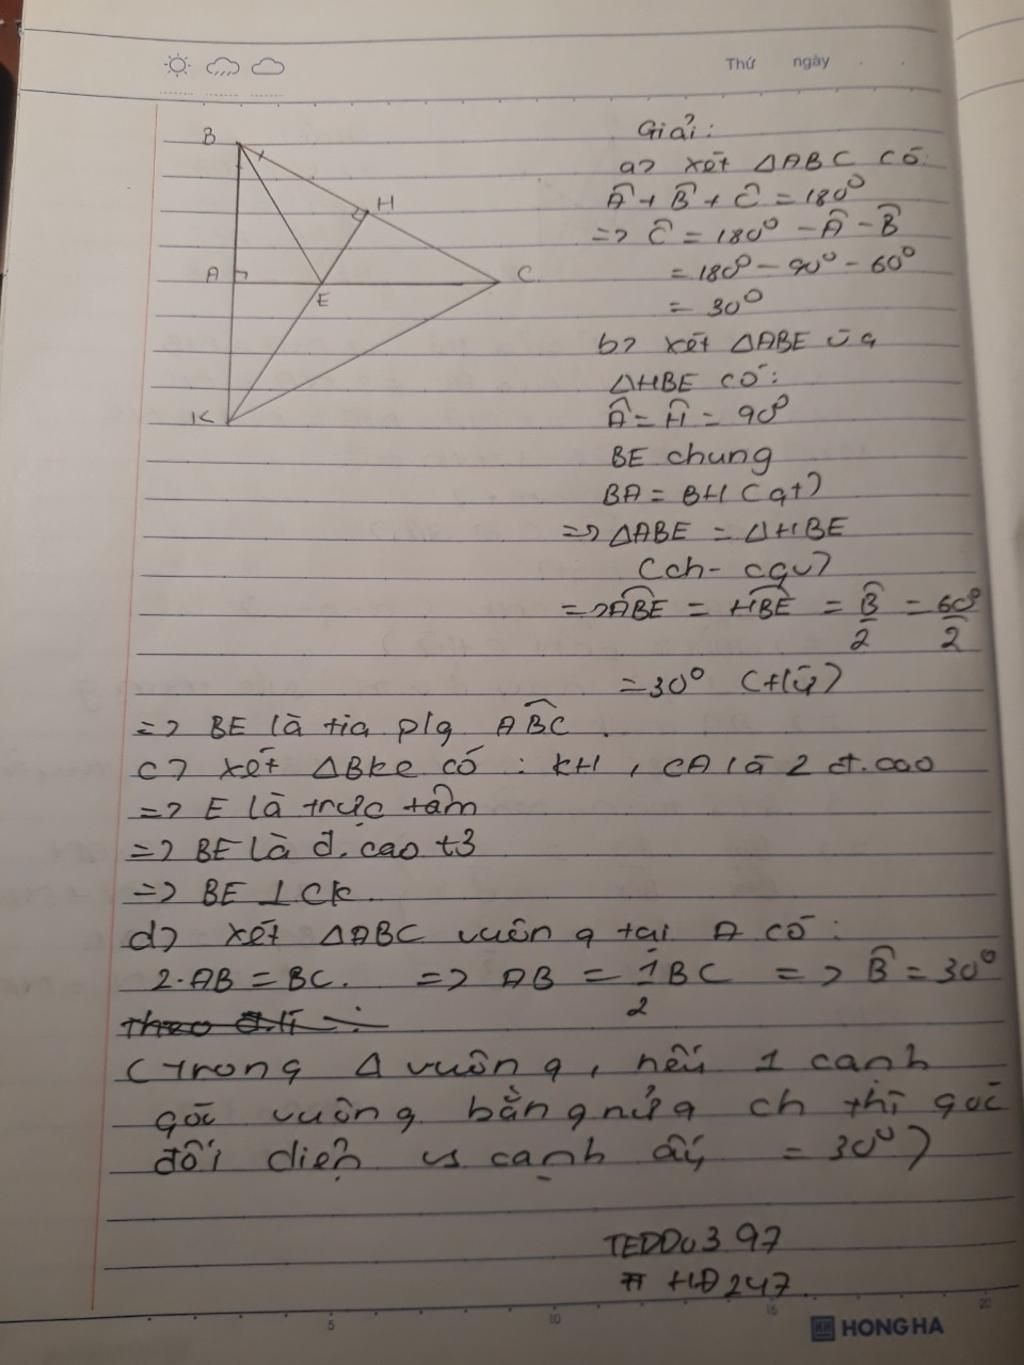 Thứ ngày
B
H
A
C
E
K
Giải:
a> xét ΔABC có:
Â + B̂ + Ĉ = 180⁰
=> Ĉ = 180⁰ - Â - B̂
= 180⁰ - 90⁰ - 60⁰
= 30⁰
b> xét ΔABE và
ΔHBE có:
Â = Ĥ = 90⁰
BE chung
BA = BH (gt)
=> ΔABE = ΔHBE
(ch - cgv)
=> ABE^ = HBE^ = B̂/2 = 60⁰/2
= 30⁰ (t/ư)
=> BE là tia p/g ABC^.
c> xét ΔBKC có : KH, CA là 2 đ.cao
=> E là trực tâm
=> BE là đ.cao t3
=> BE ⊥ CK
d> xét ΔABC vuông tại A có:
2.AB = BC. => AB = 1/2 BC => B̂ = 30⁰
Theo đ.lí :
(Trong Δ vuông, nếu 1 cạnh
góc vuông bằng nửa ch thì góc
đối diện vs cạnh ấy = 30⁰)
TEDDU397
# HĐ247
5 10 15 20
HH HONG HA